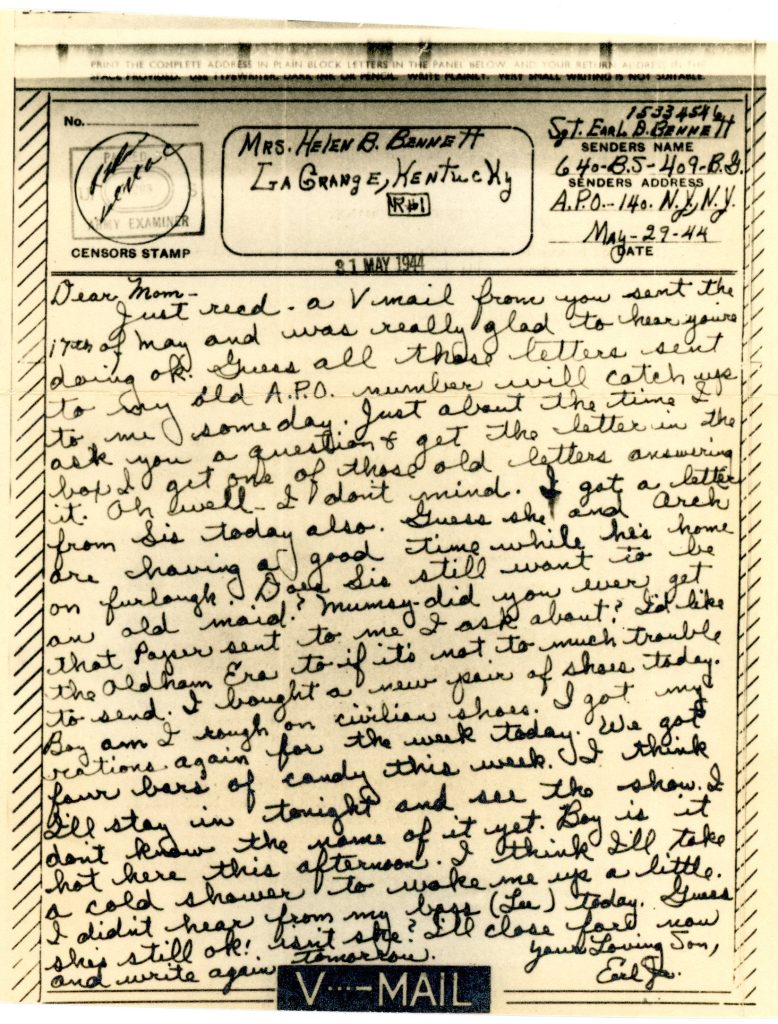 PRINT THE COMPLETE ADDRESS IN PLAIN BLOCK LETTERS IN THE PANEL BELOW, AND YOUR RETURN ADDRESS IN THE
SPACE PROVIDED. USE TYPEWRITER, DARK INK OR PENCIL. WRITE PLAINLY. VERY SMALL WRITING IS NOT SUITABLE.
No.
ARMY EXAMINER
CENSORS STAMP
MRS. HELEN B. BENNETT
LA GRANGE, KENTUCKY
R#1
15334546
Sgt. EARL D. BENNETT
SENDERS NAME
640-B.S-409-B.G.
SENDERS ADDRESS
A.P.O.-140. N.Y., N.Y.
May-29-44
DATE
31 MAY 1944
Dear Mom-
Just recd. a V mail from you sent the
17th of May and was really glad to hear you're
doing ok. Guess all those letters sent
to my old A.P.O. number will catch up
to me someday. Just about the time I
ask you a question & get the letter in the
box I get one of those old letters answering
it. Oh well- I don't mind. I got a letter
from Sis today also. Guess she and Arch
are having a good time while he's home
on furlough. Does Sis still want to be
an old maid? Mumsy-did you ever get
that Paper sent to me I ask about? I'd like
the Oldham Era to if it's not to much trouble
to send. I bought a new pair of shoes today.
Boy am I rough on civilian shoes. I got my
rations again for the week today. We got
four bars of candy this week. I think
I'll stay in tonight and see the show. I
don't know the name of it yet. Boy is it
hot here this afternoon. I think I'll take
a cold shower to wake me up a little.
I didn't hear from my boss (Lee) today. Guess
shes still ok! isn't she? I'll close for now
and write again tomorrow.
Your Loving Son,
Earl Jr.
V···-MAIL